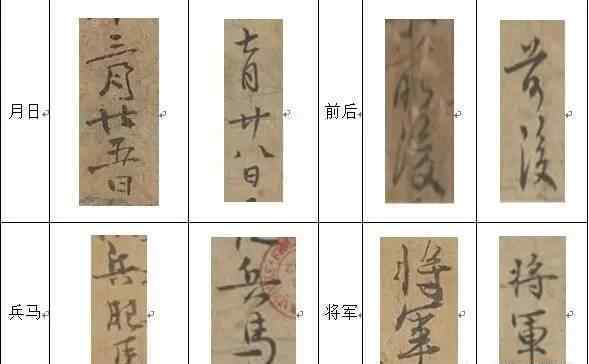 月日
三月廿五日
七月廿八日
前后
後
前後
兵马
兵
兵馬
将军
将軍
将軍